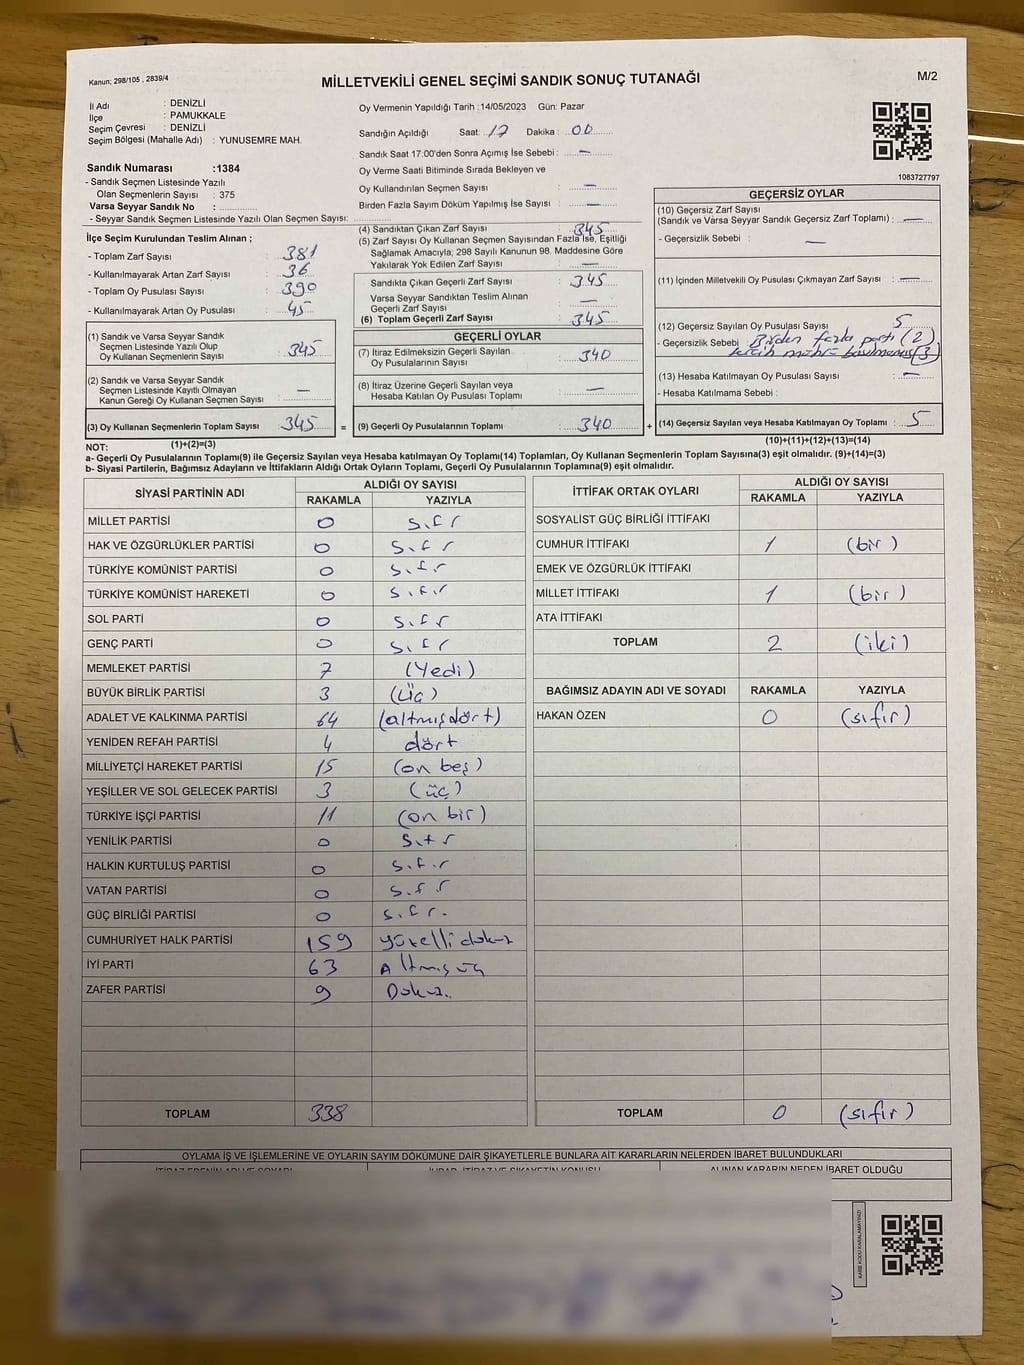 Kanun; 298/105 , 2839/4
MİLLETVEKİLİ GENEL SEÇİMİ SANDIK SONUÇ TUTANAĞI
M/2
İl Adı : DENİZLİ
İlçe : PAMUKKALE
Seçim Çevresi : DENİZLİ
Seçim Bölgesi (Mahalle Adı) : YUNUSEMRE MAH.
Sandık Numarası :1384
- Sandık Seçmen Listesinde Yazılı
Olan Seçmenlerin Sayısı : 375
Varsa Seyyar Sandık No :
- Seyyar Sandık Seçmen Listesinde Yazılı Olan Seçmen Sayısı:
Oy Vermenin Yapıldığı Tarih :14/05/2023 Gün: Pazar
Sandığın Açıldığı Saat: 17 Dakika : 00
Sandık Saat 17:00'den Sonra Açımış İse Sebebi : —
Oy Verme Saati Bitiminde Sırada Bekleyen ve
Oy Kullandırılan Seçmen Sayısı : —
Birden Fazla Sayım Döküm Yapılmış İse Sayısı : —
1083727797
İlçe Seçim Kurulundan Teslim Alınan ;
- Toplam Zarf Sayısı : 381
- Kullanılmayarak Artan Zarf Sayısı : 36
- Toplam Oy Pusulası Sayısı : 390
- Kullanılmayarak Artan Oy Pusulası : 45
(1) Sandık ve Varsa Seyyar Sandık
Seçmen Listesinde Yazılı Olup
Oy Kullanan Seçmenlerin Sayısı : 345
(2) Sandık ve Varsa Seyyar Sandık
Seçmen Listesinde Kayıtlı Olmayan
Kanun Gereği Oy Kullanan Seçmen Sayısı : —
(3) Oy Kullanan Seçmenlerin Toplam Sayısı : 345 =
(1)+(2)=(3)
(4) Sandıktan Çıkan Zarf Sayısı : 345
(5) Zarf Sayısı Oy Kullanan Seçmen Sayısından Fazla İse, Eşitliği
Sağlamak Amacıyla, 298 Sayılı Kanunun 98. Maddesine Göre
Yakılarak Yok Edilen Zarf Sayısı : —
Sandıkta Çıkan Geçerli Zarf Sayısı : 345
Varsa Seyyar Sandıktan Teslim Alınan
Geçerli Zarf Sayısı : —
(6) Toplam Geçerli Zarf Sayısı : 345
GEÇERLİ OYLAR
(7) İtiraz Edilmeksizin Geçerli Sayılan
Oy Pusulalarının Sayısı : 340
(8) İtiraz Üzerine Geçerli Sayılan veya
Hesaba Katılan Oy Pusulası Toplamı : —
(9) Geçerli Oy Pusulalarının Toplamı : 340 +
GEÇERSİZ OYLAR
(10) Geçersiz Zarf Sayısı
(Sandık ve Varsa Seyyar Sandık Geçersiz Zarf Toplamı) : —
- Geçersizlik Sebebi : —
(11) İçinden Milletvekili Oy Pusulası Çıkmayan Zarf Sayısı : —
(12) Geçersiz Sayılan Oy Pusulası Sayısı : 5
- Geçersizlik Sebebi : Birden fazla parti (2)
tercih mührü basılmamış (3)
(13) Hesaba Katılmayan Oy Pusulası Sayısı : —
- Hesaba Katılmama Sebebi :
(14) Geçersiz Sayılan veya Hesaba Katılmayan Oy Toplamı : 5
(10)+(11)+(12)+(13)=(14)
NOT:
a- Geçerli Oy Pusulalarının Toplamı(9) ile Geçersiz Sayılan veya Hesaba katılmayan Oy Toplamı(14) Toplamları, Oy Kullanan Seçmenlerin Toplam Sayısına(3) eşit olmalıdır. (9)+(14)=(3)
b- Siyasi Partilerin, Bağımsız Adayların ve İttifakların Aldığı Ortak Oyların Toplamı, Geçerli Oy Pusulalarının Toplamına(9) eşit olmalıdır.
SİYASİ PARTİNİN ADI ALDIĞI OY SAYISI
RAKAMLA YAZIYLA
MİLLET PARTİSİ 0 sıfır
HAK VE ÖZGÜRLÜKLER PARTİSİ 0 sıfır
TÜRKİYE KOMÜNİST PARTİSİ 0 sıfır
TÜRKİYE KOMÜNİST HAREKETİ 0 sıfır
SOL PARTİ 0 sıfır
GENÇ PARTİ 0 sıfır
MEMLEKET PARTİSİ 7 (Yedi)
BÜYÜK BİRLİK PARTİSİ 3 (üç)
ADALET VE KALKINMA PARTİSİ 64 (altmışdört)
YENİDEN REFAH PARTİSİ 4 dört
MİLLİYETÇİ HAREKET PARTİSİ 15 (on beş)
YEŞİLLER VE SOL GELECEK PARTİSİ 3 (üç)
TÜRKİYE İŞÇİ PARTİSİ 11 (on bir)
YENİLİK PARTİSİ 0 sıfır
HALKIN KURTULUŞ PARTİSİ 0 sıfır
VATAN PARTİSİ 0 sıfır
GÜÇ BİRLİĞİ PARTİSİ 0 sıfır.
CUMHURİYET HALK PARTİSİ 159 yüzellidokuz
İYİ PARTİ 63 Altmışüç
ZAFER PARTİSİ 9 Dokuz..
TOPLAM 338
İTTİFAK ORTAK OYLARI ALDIĞI OY SAYISI
RAKAMLA YAZIYLA
SOSYALİST GÜÇ BİRLİĞİ İTTİFAKI
CUMHUR İTTİFAKI 1 (bir)
EMEK VE ÖZGÜRLÜK İTTİFAKI
MİLLET İTTİFAKI 1 (bir)
ATA İTTİFAKI
TOPLAM 2 (iki)
BAĞIMSIZ ADAYIN ADI VE SOYADI RAKAMLA YAZIYLA
HAKAN ÖZEN 0 (sıfır)
TOPLAM 0 (sıfır)
OYLAMA İŞ VE İŞLEMLERİNE VE OYLARIN SAYIM DÖKÜMÜNE DAİR ŞİKAYETLERLE BUNLARA AİT KARARLARIN NELERDEN İBARET BULUNDUKLARI
İTİRAZ EDENİN ADI VE SOYADI İHBAR, İTİRAZ VE ŞİKAYETİN KONUSU ALINAN KARARIN NEDEN İBARET OLDUĞU
KARE KODU KARALAMAYINIZ!